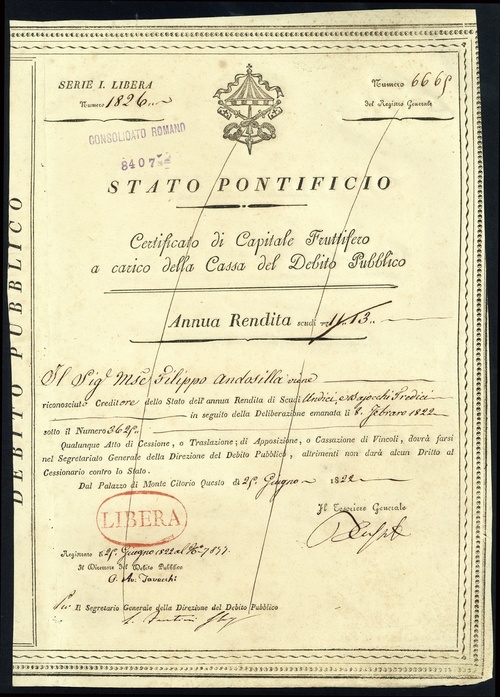 SERIE I. LIBERA
Numero 1826
Numero 6665
del Registro Generale
CONSOLIDATO ROMANO
8407
STATO PONTIFICIO
Certificato di Capitale Fruttifero
a carico della Cassa del Debito Pubblico
Annua Rendita scudi 11.. 13..
Il Sigr Mse Filippo Andosilla viene
riconosciuto Creditore dello Stato dell'annua Rendita di Scudi Undici, e Bajocchi Tredici
in seguito della Deliberazione emanata li 8. Febraro 1822
sotto il Numero 3625
Qualunque Atto di Cessione, o Traslazione; di Apposizione, o Cassazione di Vincoli, dovrà farsi
nel Segretariato Generale della Direzione del Debito Pubblico, altrimenti non darà alcun Dritto al
Cessionario contro lo Stato.
Dal Palazzo di Monte Citorio Questo dì 25. Giugno 1822
LIBERA
Il Tesoriere Generale
Registrato li 25. Giugno 1822 al No. 7877
Il Direttore del Debito Pubblico
Il Segretario Generale della Direzione del Debito Pubblico
DEBITO PUBBLICO